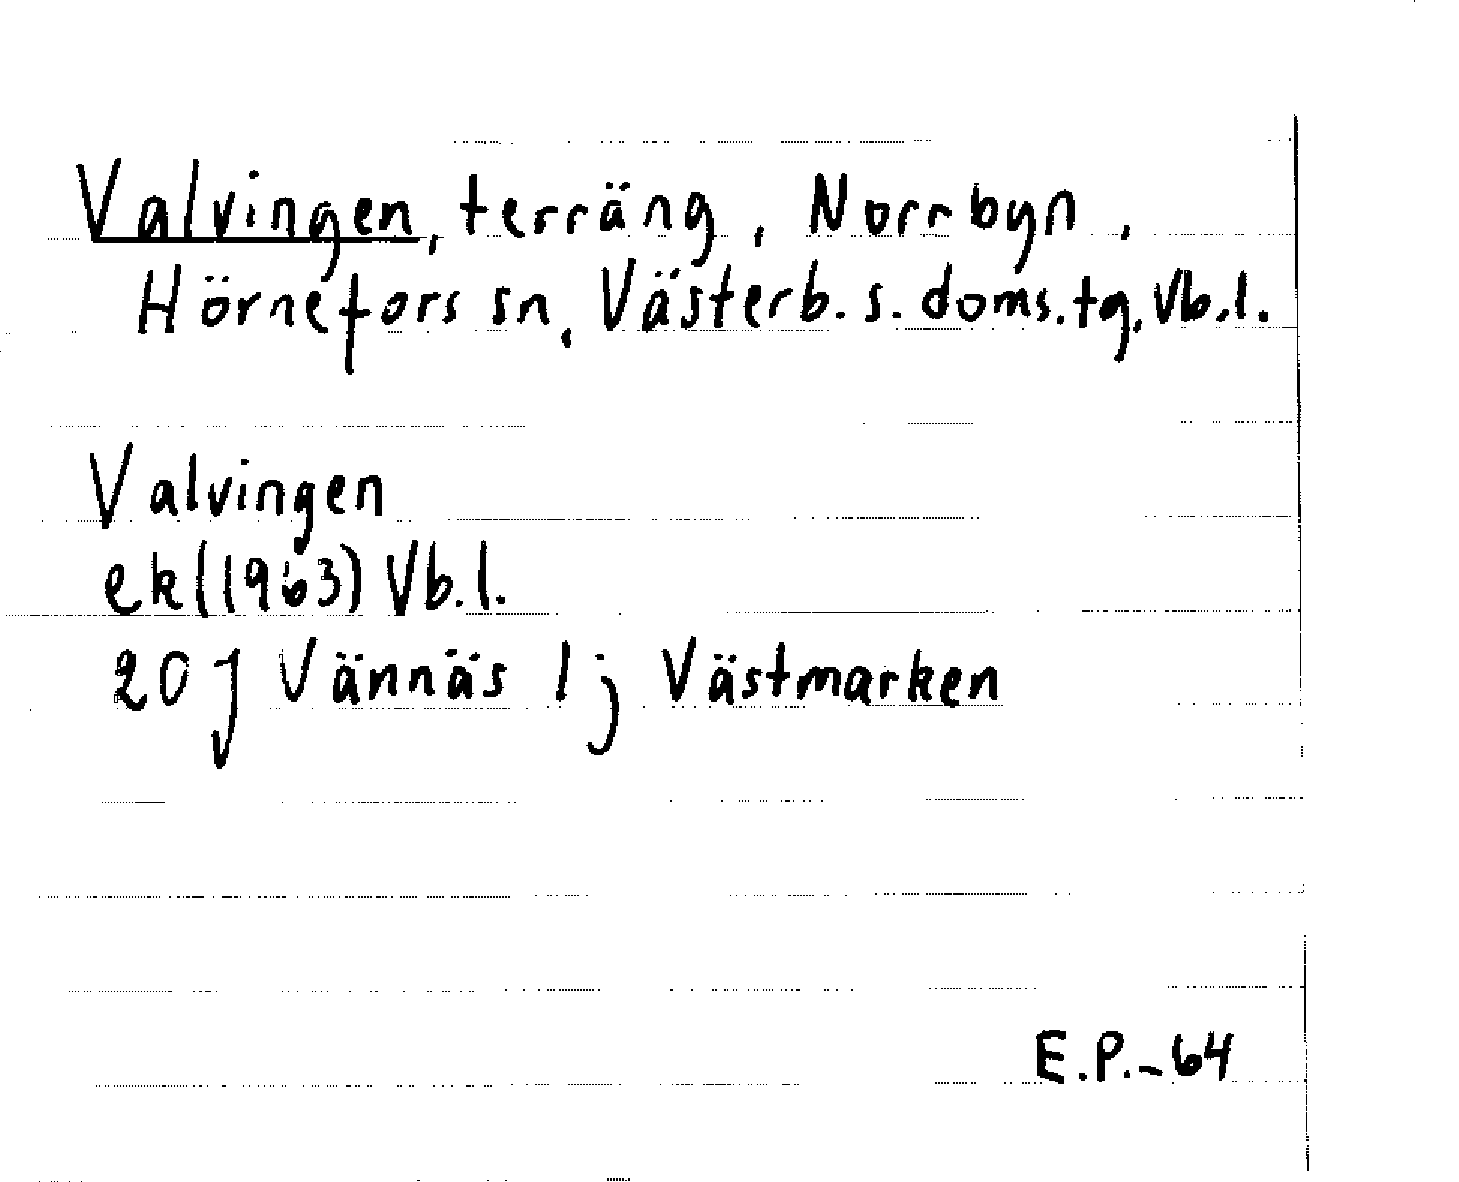 Valvingen, terräng, Norrbyn,
Hörnefors sn, Västerb. s. doms. tg, Vb.l.
Valvingen
ek (1963) Vb.l.
20 J Vännäs 1 j Västmarken
E.P.-64